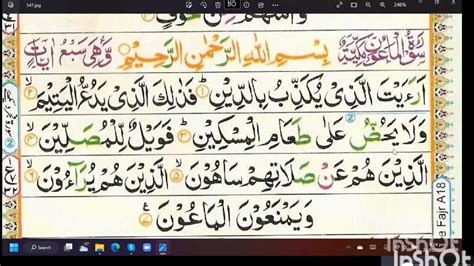 S47.jpg
246%
وَّاٰمَنَهُمْ مِّنْ خَوْفٍ
سُوْرَةُ الْمَاعُوْنِ مَكِّيَّةٌ بِسْمِ اللّٰهِ الرَّحْمٰنِ الرَّحِيْمِ وَّهِيَ سَبْعُ اٰيَاتٍ
اَرَءَيْتَ الَّذِيْ يُكَذِّبُ بِالدِّيْنِ ۱ فَذٰلِكَ الَّذِيْ يَدُعُّ الْيَتِيْمَ ۲
وَلَا يَحُضُّ عَلٰى طَعَامِ الْمِسْكِيْنِ ۳ فَوَيْلٌ لِّلْمُصَلِّيْنَ ۴
الَّذِيْنَ هُمْ عَنْ صَلَاتِهِمْ سَاهُوْنَ ۵ الَّذِيْنَ هُمْ يُرَآءُوْنَ ۶
وَيَمْنَعُوْنَ الْمَاعُوْنَ ۷
2
2
e Fajr A18
Search
InShOt
InShOt